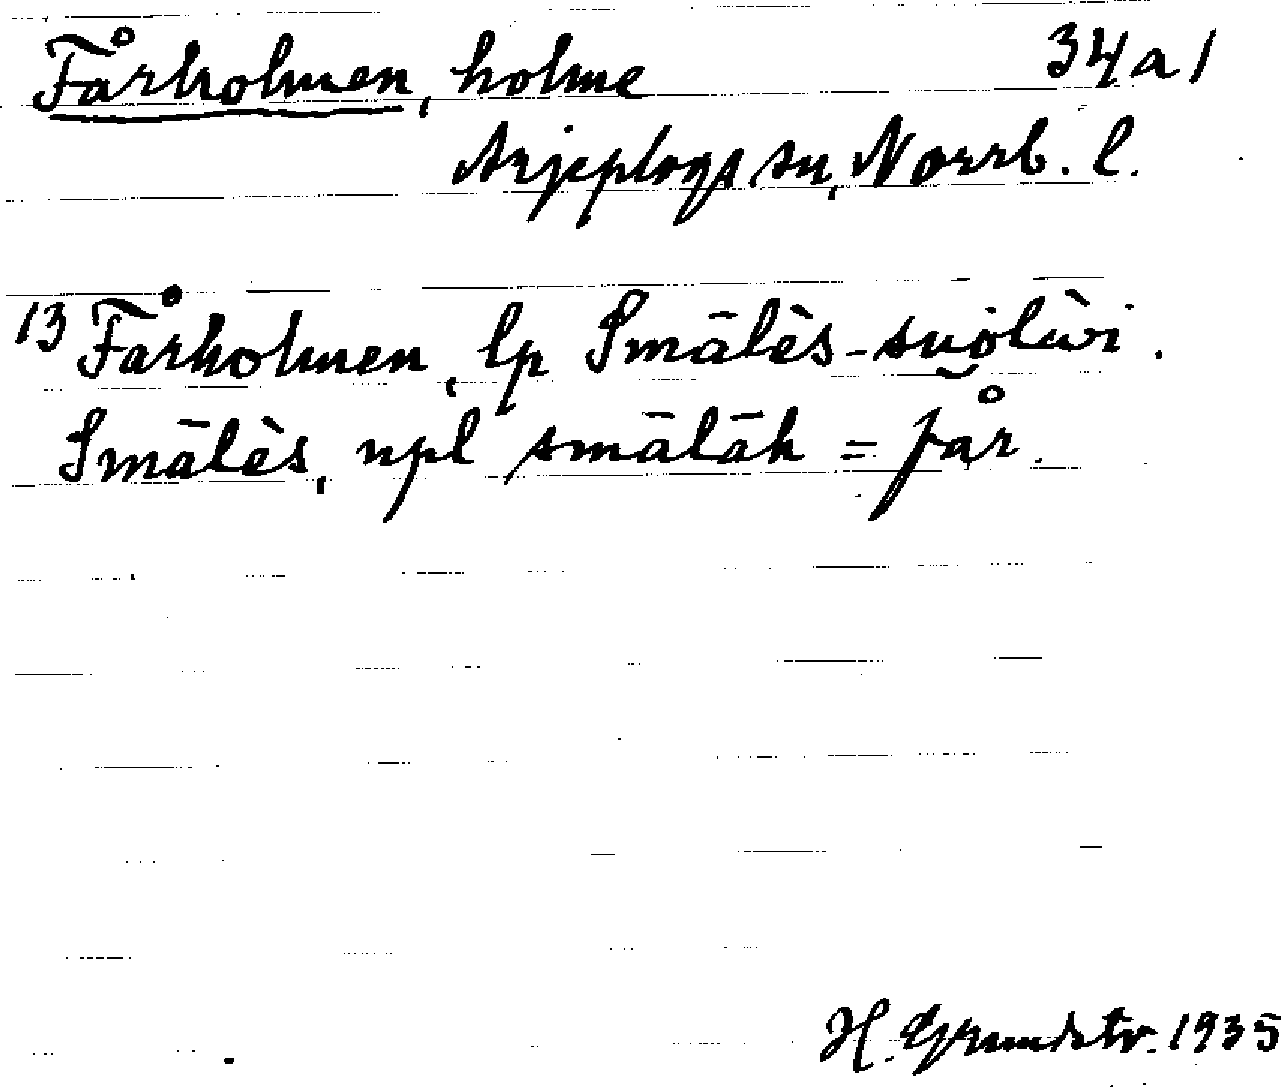 Fårholmen, holme 34a1
Arjeplogs sn, Norrb. l.
13 Fårholmen, lp Smālès-suo͝lùi.
Smālès, npl smālāk = får.
H. Grundstr. 1935